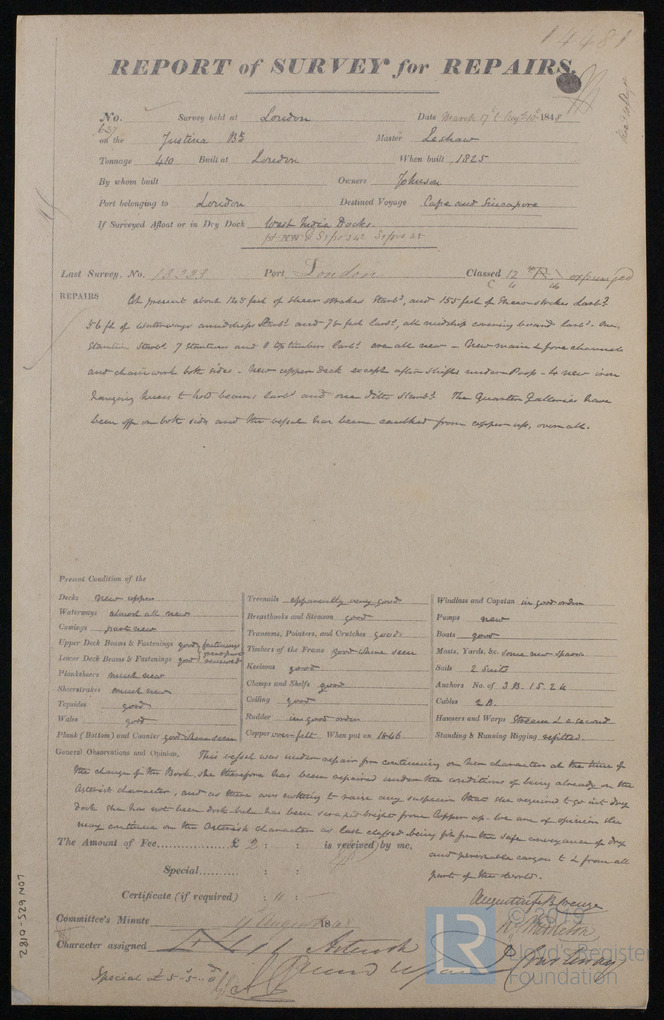 14481
REPORT of SURVEY for REPAIRS.
No. 627 Survey held at London Date March 17th to Augst 1848
on the Justina Bk Master Leshaw
Tonnage 410 Built at London When built 1825
By whom built Owners Johnson
Port belonging to London Destined Voyage Cape and Sincapore
If Surveyed Afloat or in Dry Dock West India Docks.
Last Survey, No. 13339 Port London Classed 12 expunged
REPAIRS At present about 128 feet of Sheer strakes Starbd, and 155 feet of Sheerstrakes Larbd
56 ft of Waterways amidships Starbd and 72 feet Larbd, all midship covering board Larbd.
Stantion Starbd 7 Stantions and 8 top timbers Larbd are all new – New main & fore channels
and chainwork both sides – New upper deck except after shifts under Poop – 10 new iron
hanging knees to hold beams Larbd and one ditto Starbd. The Quarter Galleries have
been off on both sides and the vessel has been caulked from copper up, over all.
Present Condition of the
Decks new upper
Waterways almost all new
Comings part new
Upper Deck Beams & Fastenings good fastenings
Lower Deck Beams & Fastenings good renewed
Planksheers much new
Sheerstrakes much new
Topsides good
Wales good
Plank (Bottom) and Counter good where seen
Treenails apparently very good
Breasthooks and Stemson good
Transoms, Pointers, and Crutches good
Timbers of the Frame good where seen
Keelsons good
Clamps and Shelfs good
Ceiling good
Rudder in good order
Copper over felt When put on 1846
Windlass and Capstan in good order
Pumps new
Boats good
Masts, Yards, &c. some new spars
Sails 2 Suits
Anchors No. of 3 B. 1 S. 2 K
Cables 2 B.
Hawsers and Warps Stream & a second
Standing & Running Rigging refitted.
General Observations and Opinion, This vessel was under repair for continuing on her character at the time of
the change of the Book, she therefore has been repaired under the conditions of being already on the
Asterisk character, and as there was nothing to raise any suspicion that she required to go into dry
dock she has not been docked but has been scraped bright from Copper up. We are of opinion she
may continue on the Asterisk character as last classed being fit for the safe conveyance of dry
and perishable cargoes to & from all
parts of the world.
The Amount of Fee £ 2 : : is received by me,
Special : :
Certificate (if required) : :
Augustin F. B. Creuze
Committee's Minute 4 August 1848
R. Middleton
Character assigned Asterisk
J. Courtenay
Special £5-5-0
2810-529 NOT
© 2019
LR
Lloyd's Register
Foundation